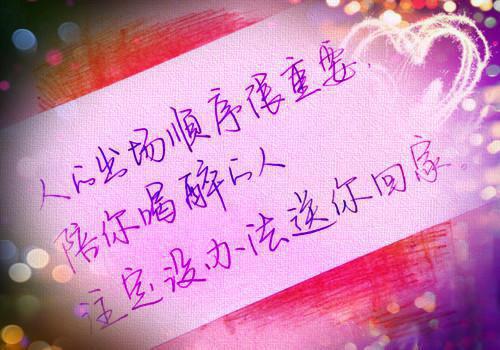 人的出场顺序很重要，
陪你喝醉的人
注定没办法送你回家。